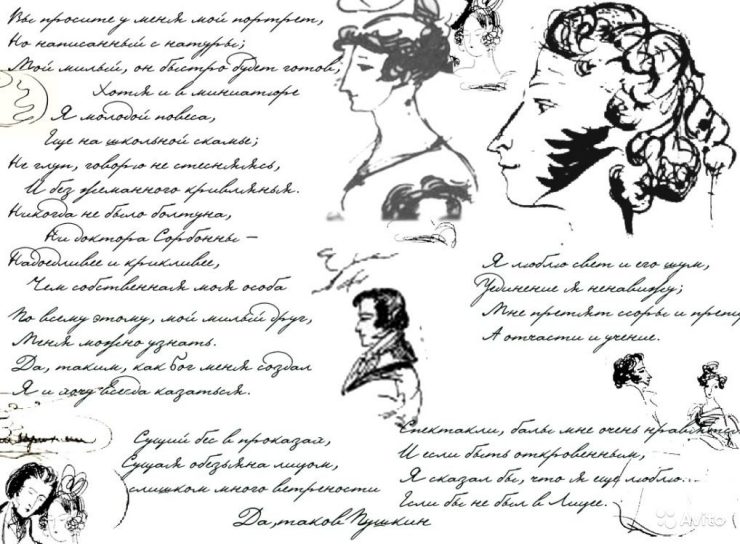 Вы просите у меня мой портрет,
Но написанный с натуры;
Мой милый, он быстро будет готов,
Хотя и в миниатюре
Я молодой повеса,
Еще на школьной скамье;
Не глуп, говорю не стесняясь,
И без жеманного кривлянья.
Никогда не было болтуна,
Ни доктора Сорбонны —
Надоедливее и крикливее,
Чем собственная моя особа
По всему этому, мой милый друг,
Меня можно узнать.
Да, таким, как Бог меня создал
Я и хочу всегда казаться.
Сущий бес в проказах,
Сущая обезьяна лицом,
слишком много ветрености
Да, таков Пушкин
Я люблю свет и его шум,
Уединение я ненавижу;
Мне претят ссоры и препи
А отчасти и учение.
Спектакли, балы мне очень нравятся
И если быть откровенным,
Я сказал бы, что я еще люблю...
Если бы не был в Лицее.
Avito